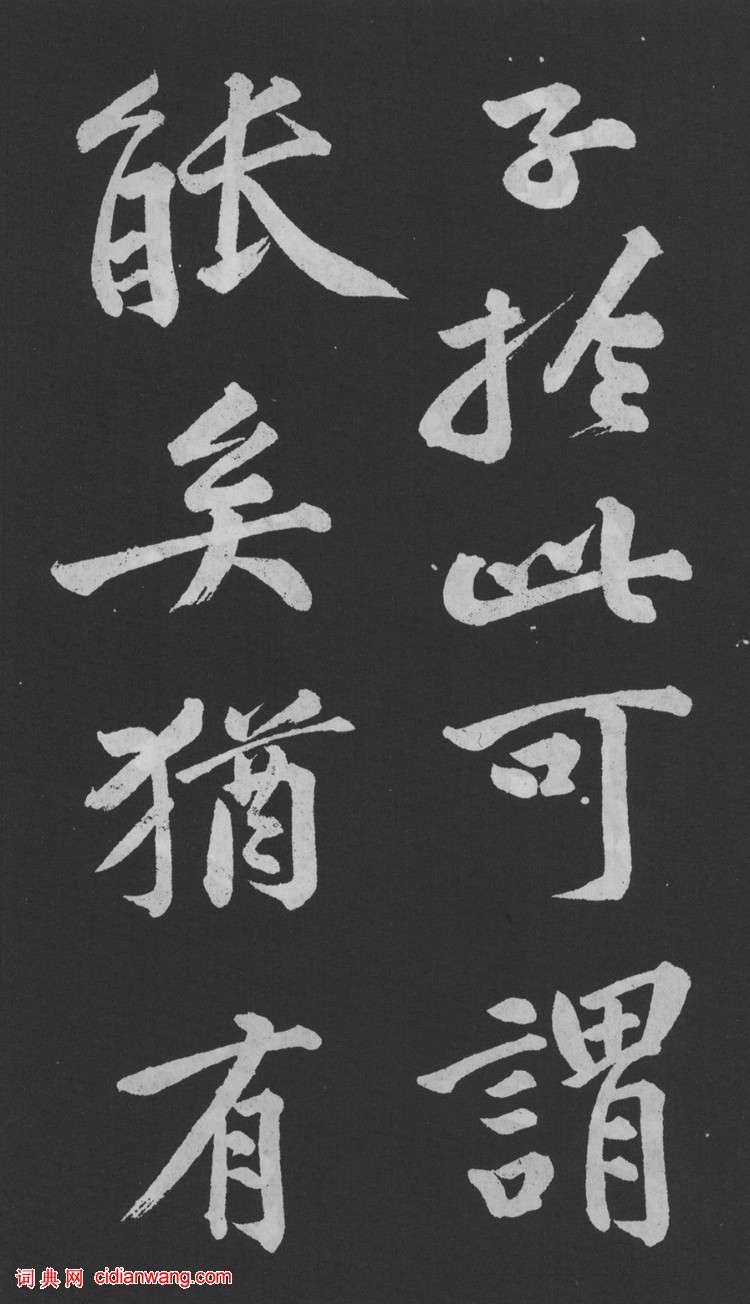 子於此可謂
能矣猶有
词典网 cidianwang.com